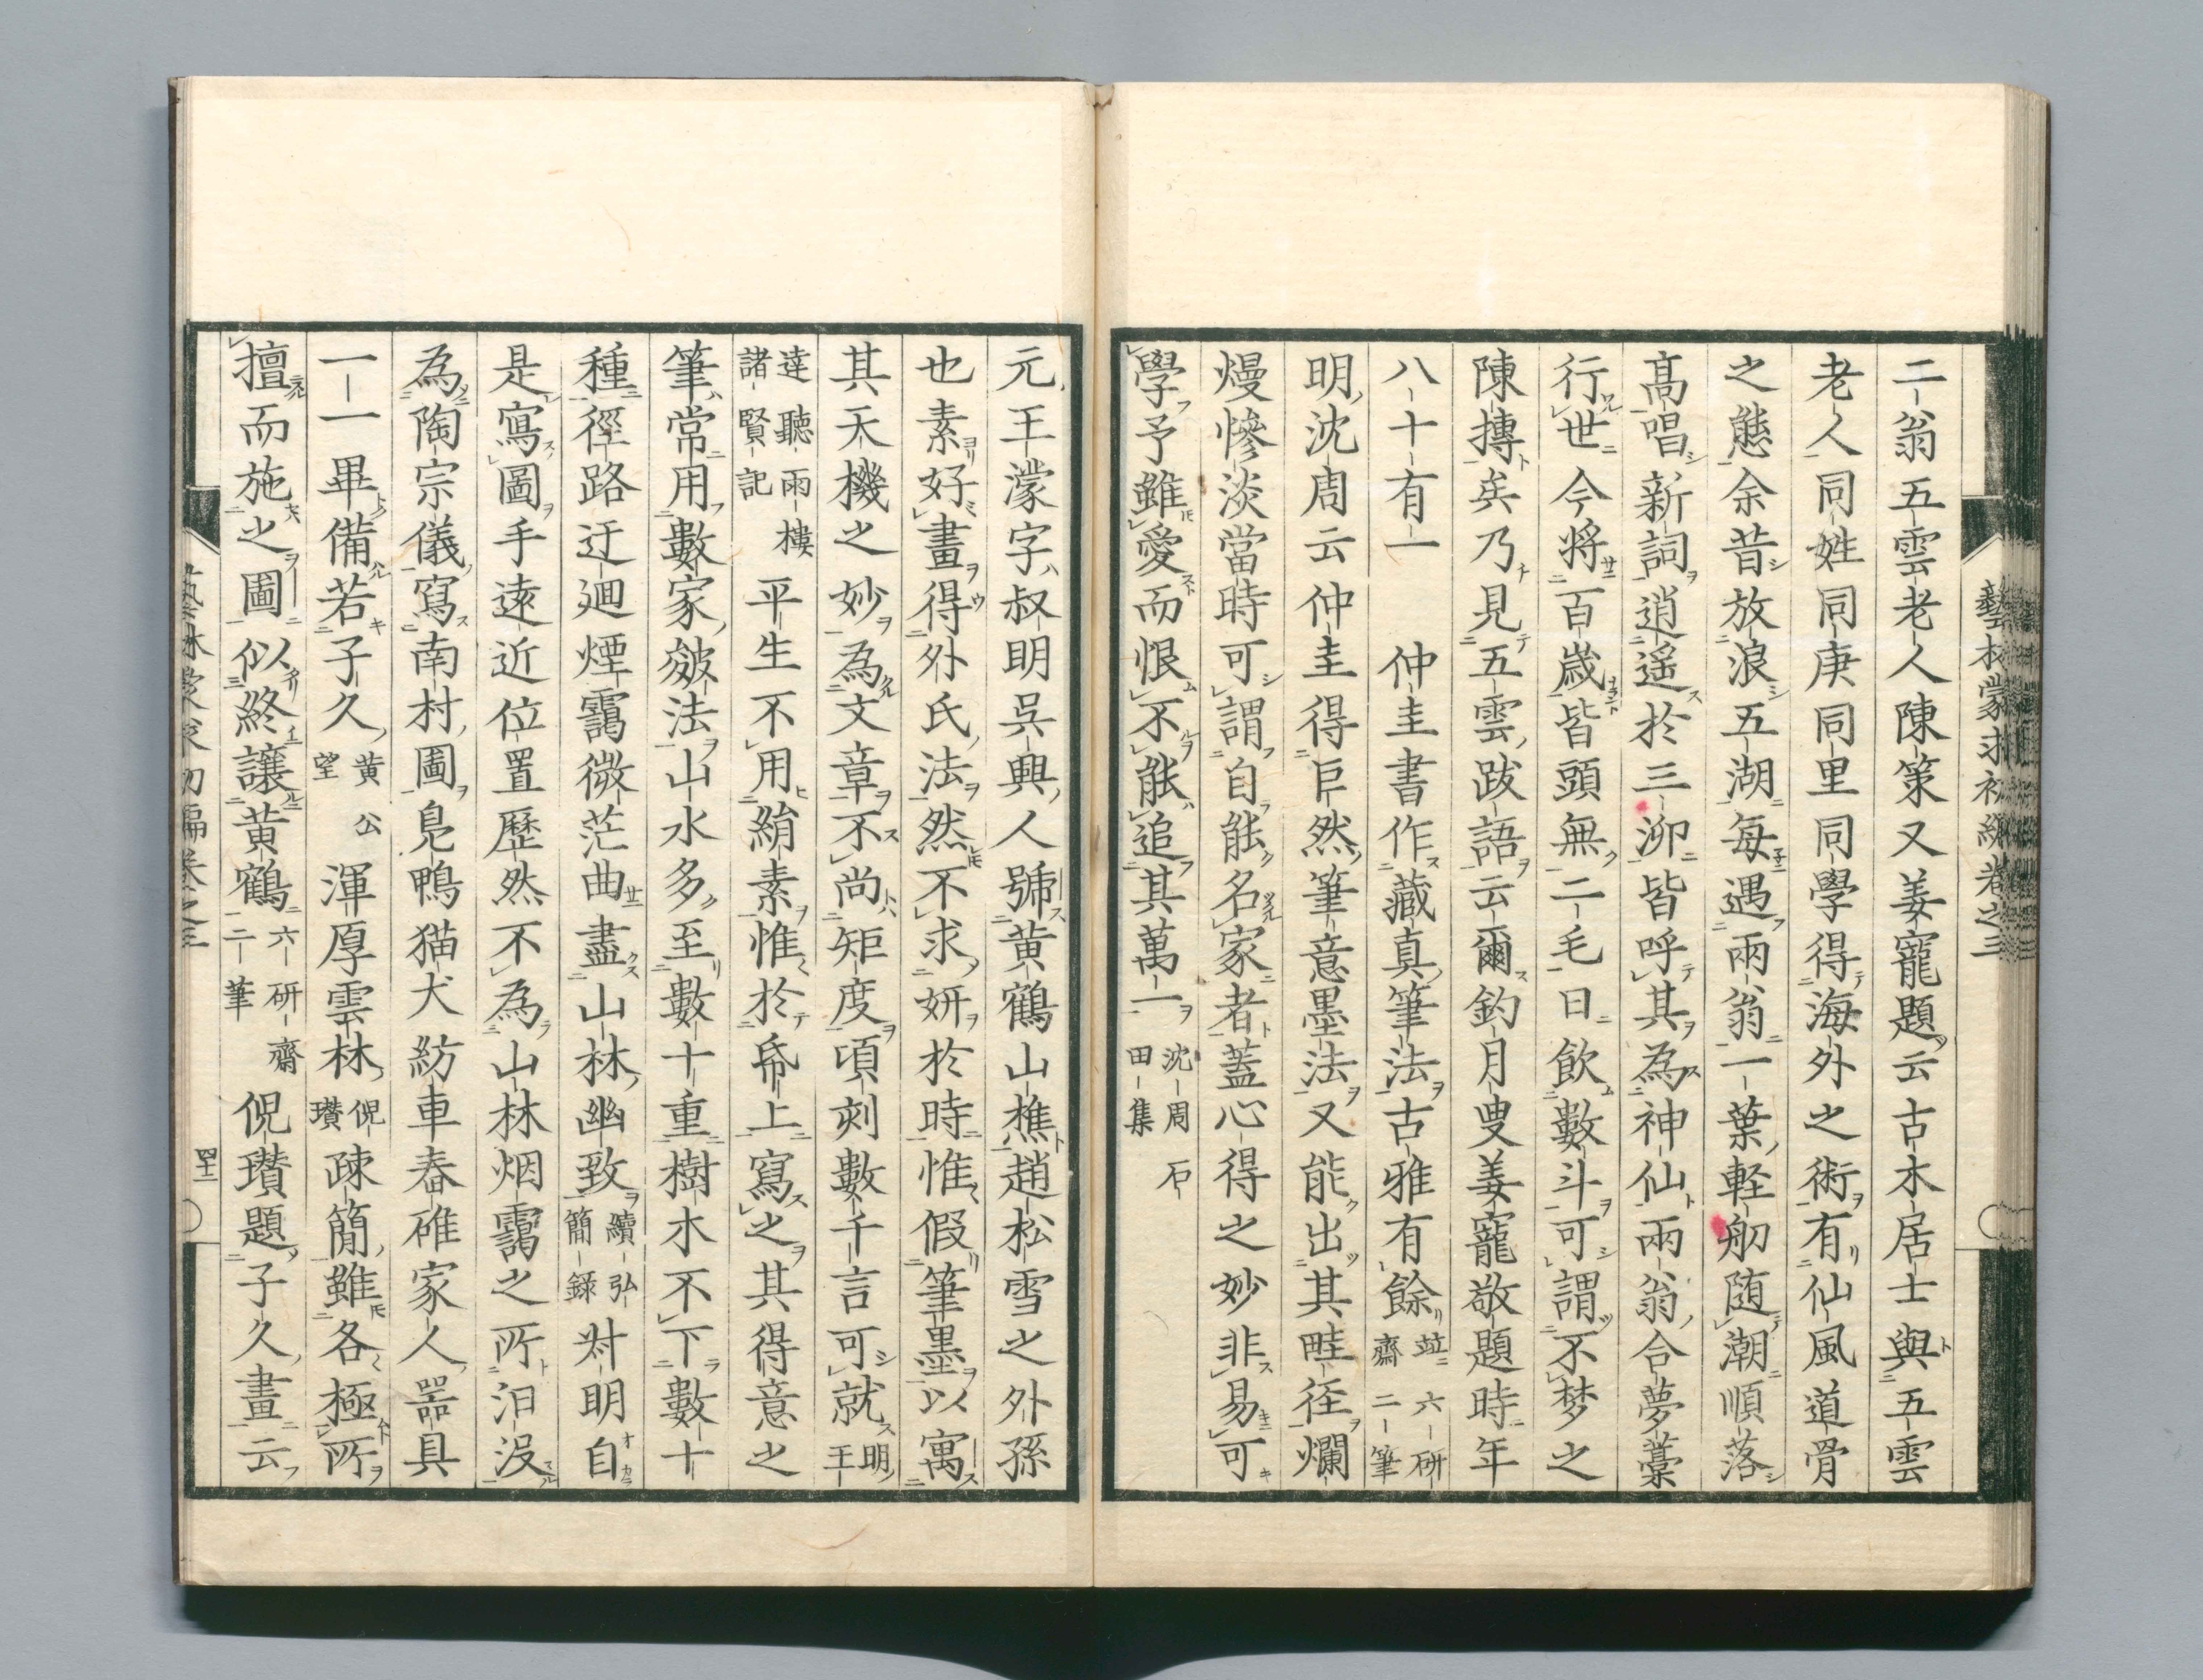 藝林蒙求初編卷之三
二翁五雲老人陳策又姜寵題云古木居士與五雲
老人同姓同庚同里同學得海外之術有仙風道骨
之態余昔放浪五湖每遇兩翁一葉軽舠随潮順落
髙唱新詞逍遙於三泖皆呼其為神仙兩翁合夢藁
行世今将百歳皆頭無二毛日飲數斗可謂不梦之
陳摶矣乃見五雲跋語云爾釣月叟姜寵敬題時年
八十有一　仲圭書作藏真筆法古雅有餘竝六研齋二筆
明沈周云仲圭得巨然筆意墨法又能出其畦径爛
熳惨淡當時可謂自能名家者蓋心得之妙非易可
學予雖愛而恨不能追其萬一沈周石田集
元王濛字叔明呉興人號黄鶴山樵趙松雪之外孫
也素好畫得外氏法然不求妍於時惟假筆墨以寓
其天機之妙為文章不尚矩度頃刻數千言可就明王
達聽雨樓諸賢記平生不用絹素惟於帋上寫之其得意之
筆常用數家皴法山水多至數十重樹木不下數十
種徑路迂廻煙靄微茫曲盡山林幽致續弘簡録叔明自
是寫圖手遠近位置歷然不為山林烟靄之所汨没
為陶宗儀寫南村圖鳬鴨猫犬紡車舂碓家人噐具
一一畢備若子久黄公望渾厚雲林倪瓚疎簡雖各極所
擅而施之圖似終讓黄鶴六研齋二筆倪瓚題子久畫云
藝林蒙求初編卷之三
四十二